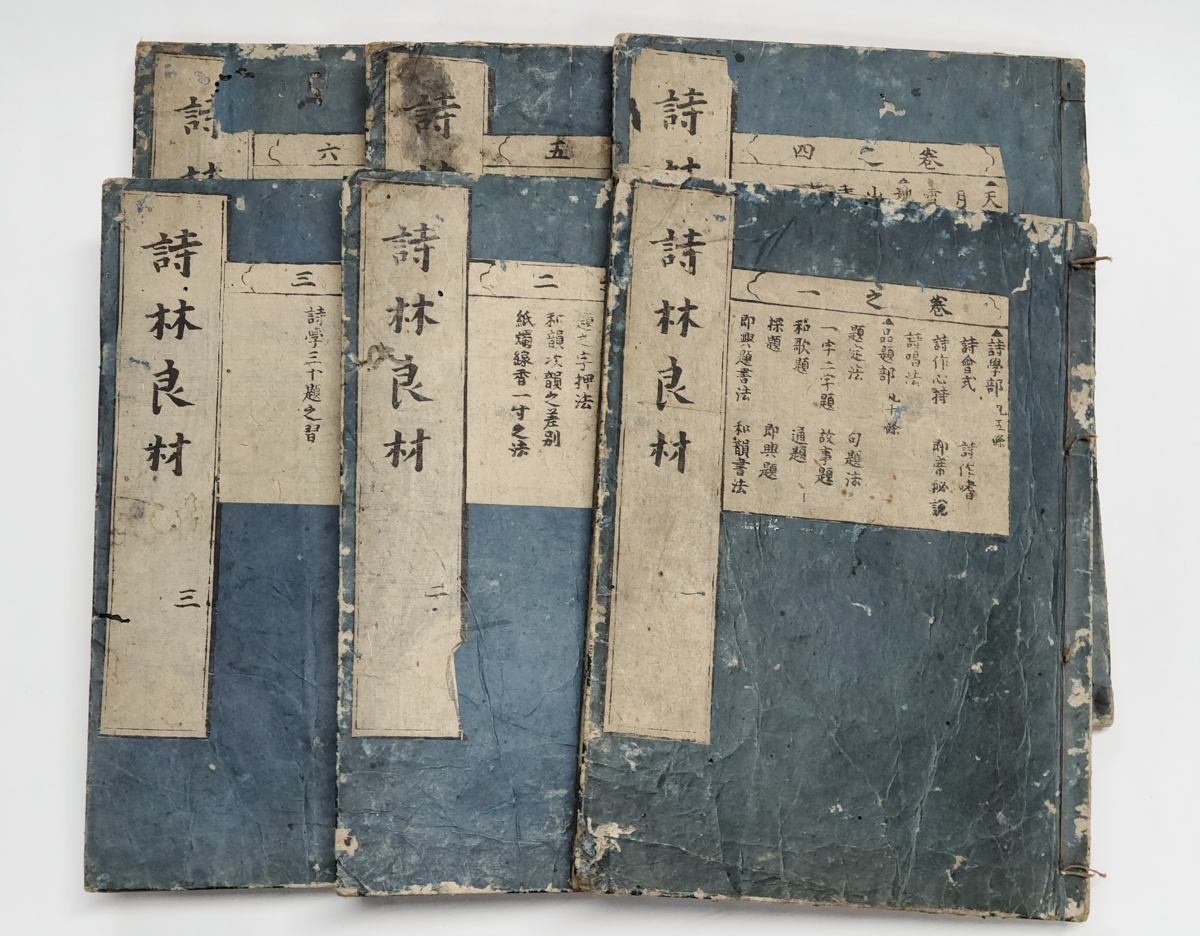 詩林良材 一
卷之一
▲詩學部 凡五條
詩會式 詩作嗜
詩作心持 即席秘說
詩唱法
▲品題部 凡十條
題定法 句題法
一字二字題 故事題
和歌題 通題
探題 即興題
即興題書法 和韻書法
詩林良材 二
二
之字押法
和韻次韻之差別
紙燭線香一寸之法
詩林良材 三
三
詩學三十題之習
詩
卷之四
▲天
月
山
詩
五
詩
六